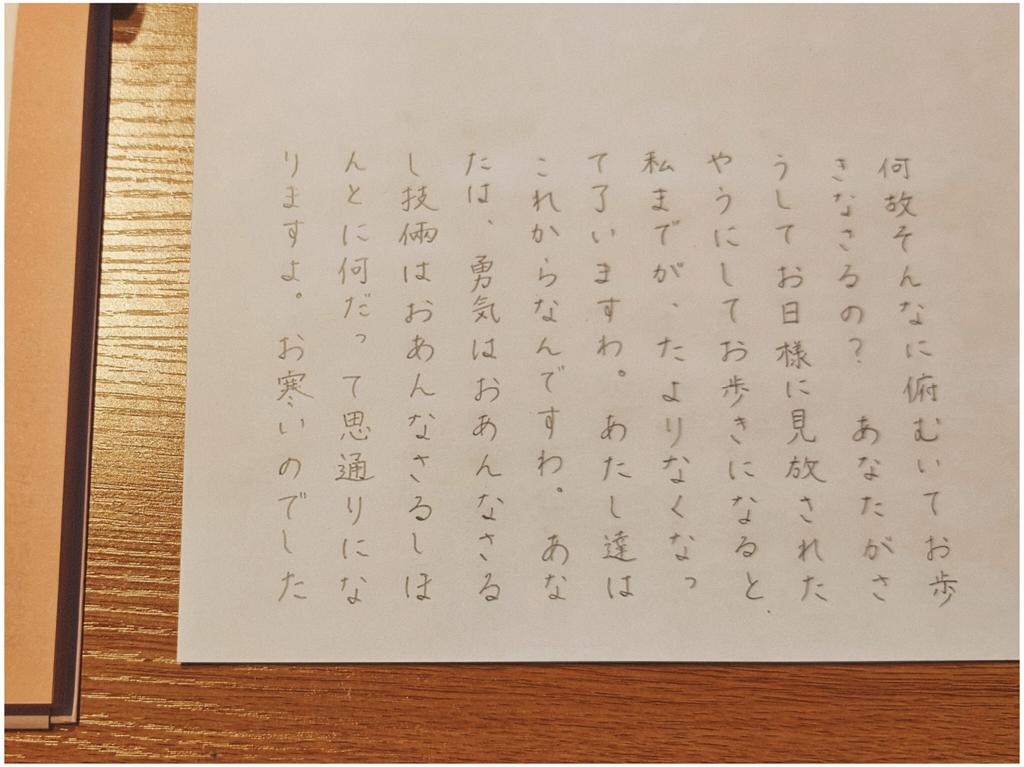 何故そんなに俯むいてお歩
きなさるの？　あなたがさ
うしてお日様に見放された
やうにしてお歩きになると、
私までが、たよりなくなっ
て了いますわ。あたし達は
これからなんですわ。あな
たは、勇気はおあんなさる
し技倆はおあんなさるしほ
んとに何だって思通りにな
りますよ。お寒いのでした